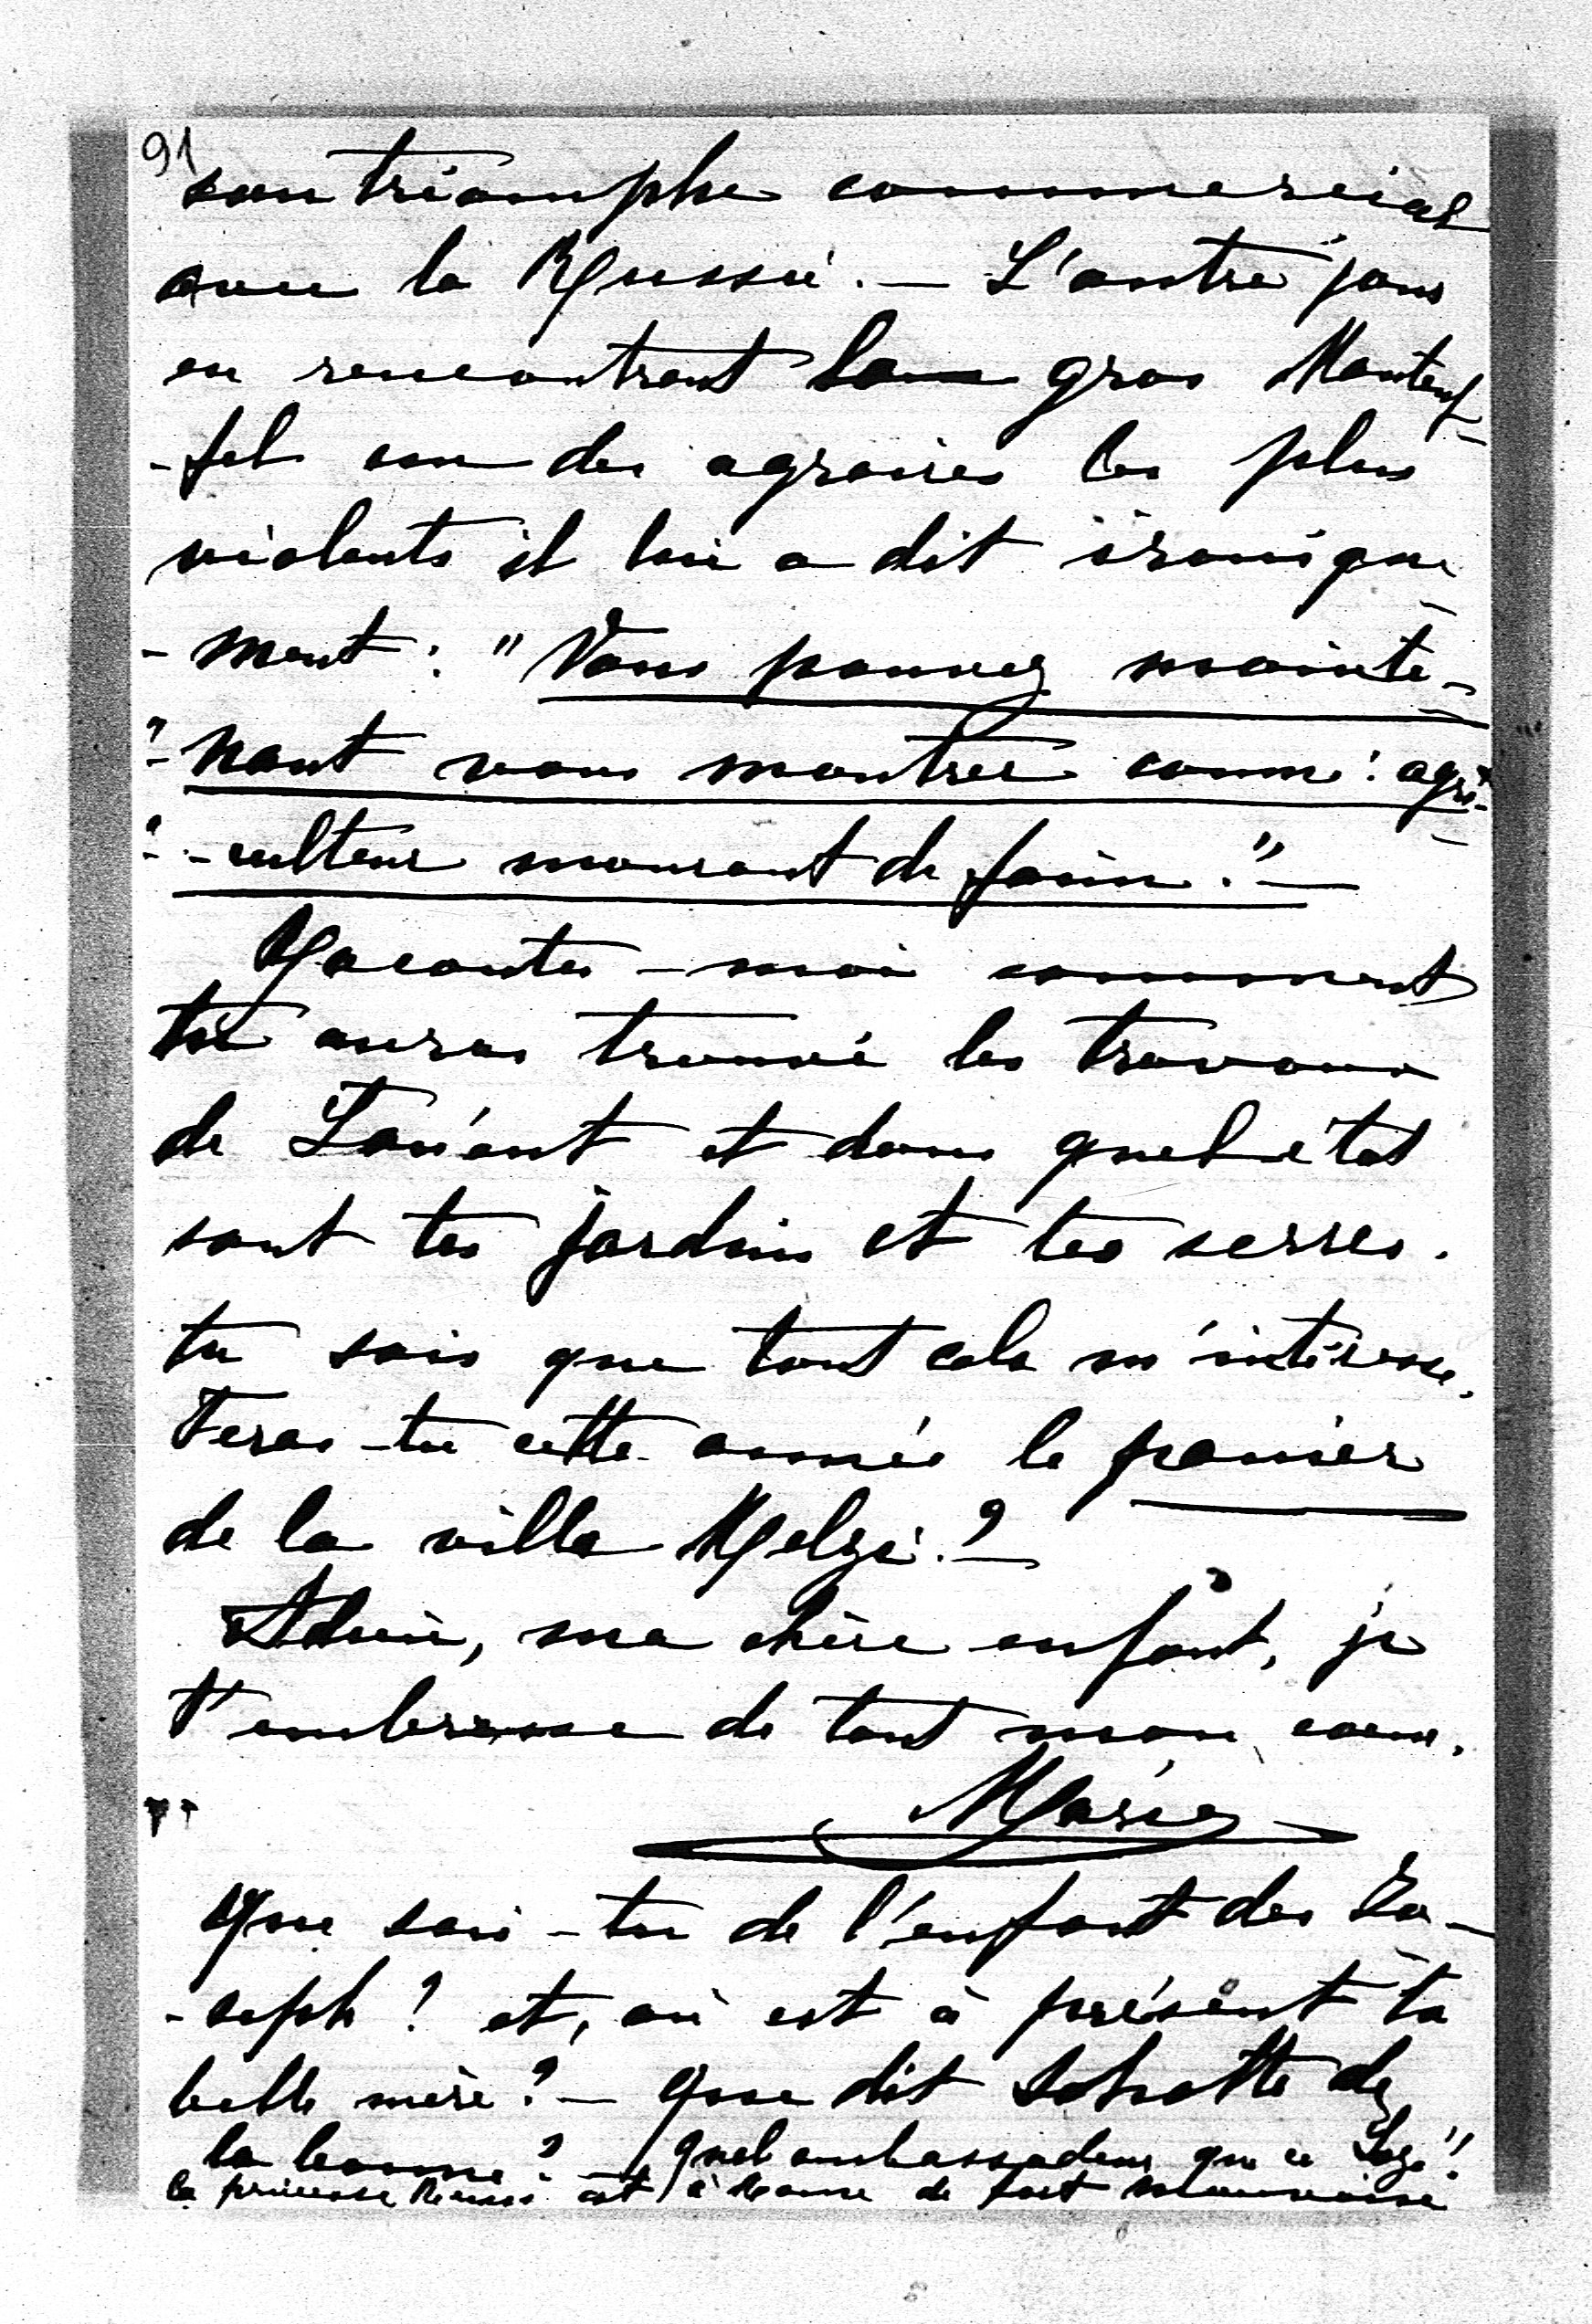 91
son triomphe commercial
avec la Russie. — L'autre jour
en rencontrant le gros Manteuf-
-fel un des agraires les plus
violents il lui a dit ironique-
-ment : "Vous pouvez mainte-
"-nant vous montrer comme : agri-
"-culteur mourant de faim." —
Racontes-moi comment
tu auras trouvé les travaux
de Lanéant et dans quel état
sont tes jardins et tes serres.
tu sais que tout cela m'intéresse.
Feras-tu cette année le panier
de la villa Melzi ? —
Adieu, ma chère enfant, je
t'embrasse de tout mon coeur.
Marie
Que sais-tu de l'enfant des Jo-
-seph ? et, où est à présent ta
belle mère ? — Que dit Lolotte de
la bonne ? — Quel ambassadeur que ce Lozé !!
la princesse Reuss est à Rome de fort mauvaise